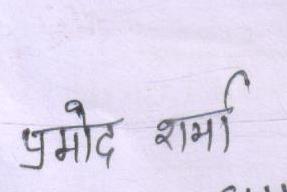 प्रमोद शर्मा